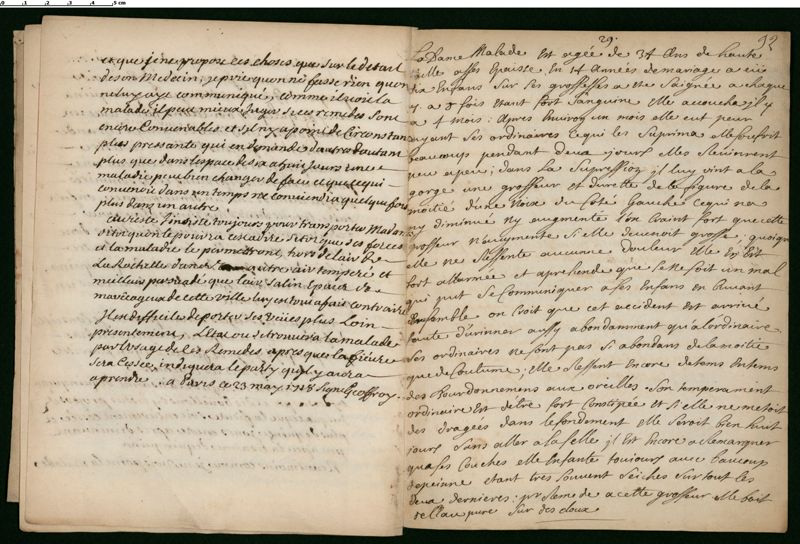 et que je ne propose ces choses que sur le détail
de son Medecin, je prie qu'on ne fasse rien qu'on
ne luy aye communiqué, comme il voit la
malade il peut mieux juger si ces remedes sont
encore Convenables et s'il n'y a point de Circonstan
plus pressante qui en demande d'autres d'autant
plus que dans l'espace de six a huit jours une
maladie peut bien changer de face et que ce qui
convenoit dans un temps ne conviendra quelque fois
plus dans un autre
au reste J'insiste toujours pour transporter Madame
sitot qu'on le pourra cest adire sitot que ses forces
et la maladie le permettront, hors de l'air de
La Rochelle dans un autre air temperé et
meilleur parce que l'air Salin Epais et
marecageux de cette ville luy est tout a fait contraire
Il est difficile de porter ses veües plus Loin
presentement, L'Etat ou se trouvera la malade
par l'usage de ces Remedes apres que la fievre
sera Cessée, indiquera le party qu'il y aura
a prendre. a Paris ce 23 may 1718 Signé Geoffroy
29. 92
La Dame Malade Est agée de 34 Ans de haute
taille asses Epaisse En 14 Années de mariage a eü
dix Enfans Sur ses grossesses a Eté Saignée a chaque
y a 8 fois Etant fort Sanguine Elle accoucha il y
a 4 mois : Apres Environ un mois elle eut peur
ayant ses ordinaires Ce qui les Suprima Elle souffrit
beaucoup pendant deux jours Elles Revinrent
peu apeu ; dans la Supression il luy vint a la
gorge une grosseur et dureté de la figure de la
moitié d'une Noix du Coté Gauche Ce qui na
ny diminué Ny augmenté l'on Craint fort que cette
grosseur N'augmente Si Elle devenoit grosse, quoi que
Elle ne Ressente aucune douleur Elle En Est
fort allarmée et aprehende que ce Ne soit un mal
qui puit se Communiquer a ses Enfans en buvant
Ensemble on Croit que cet accident Est arrivé
faute d'uriner aussy abondamment qu'a l'ordinaire
Ses ordinaires ne sont pas si abondans de la moitié
que de Coutume ; Elle Ressent Encore de tems En tems
des Bourdonnemens aux oreilles Son temperament
ordinaire Est d'être fort Constipée et si elle ne metoit
des dragées dans le fondement Elle Seroit bien huit
jours Sans aller a la Selle, il Est Encore a Remarquer
qu'a ses Couches elle Enfante toujours avec beaucoup
de peine Etant tres Souvent Seiches Sur tout les
deux dernieres : pr Remede a cette grosseur Elle boit
de l'Eau pure Sur des cloux